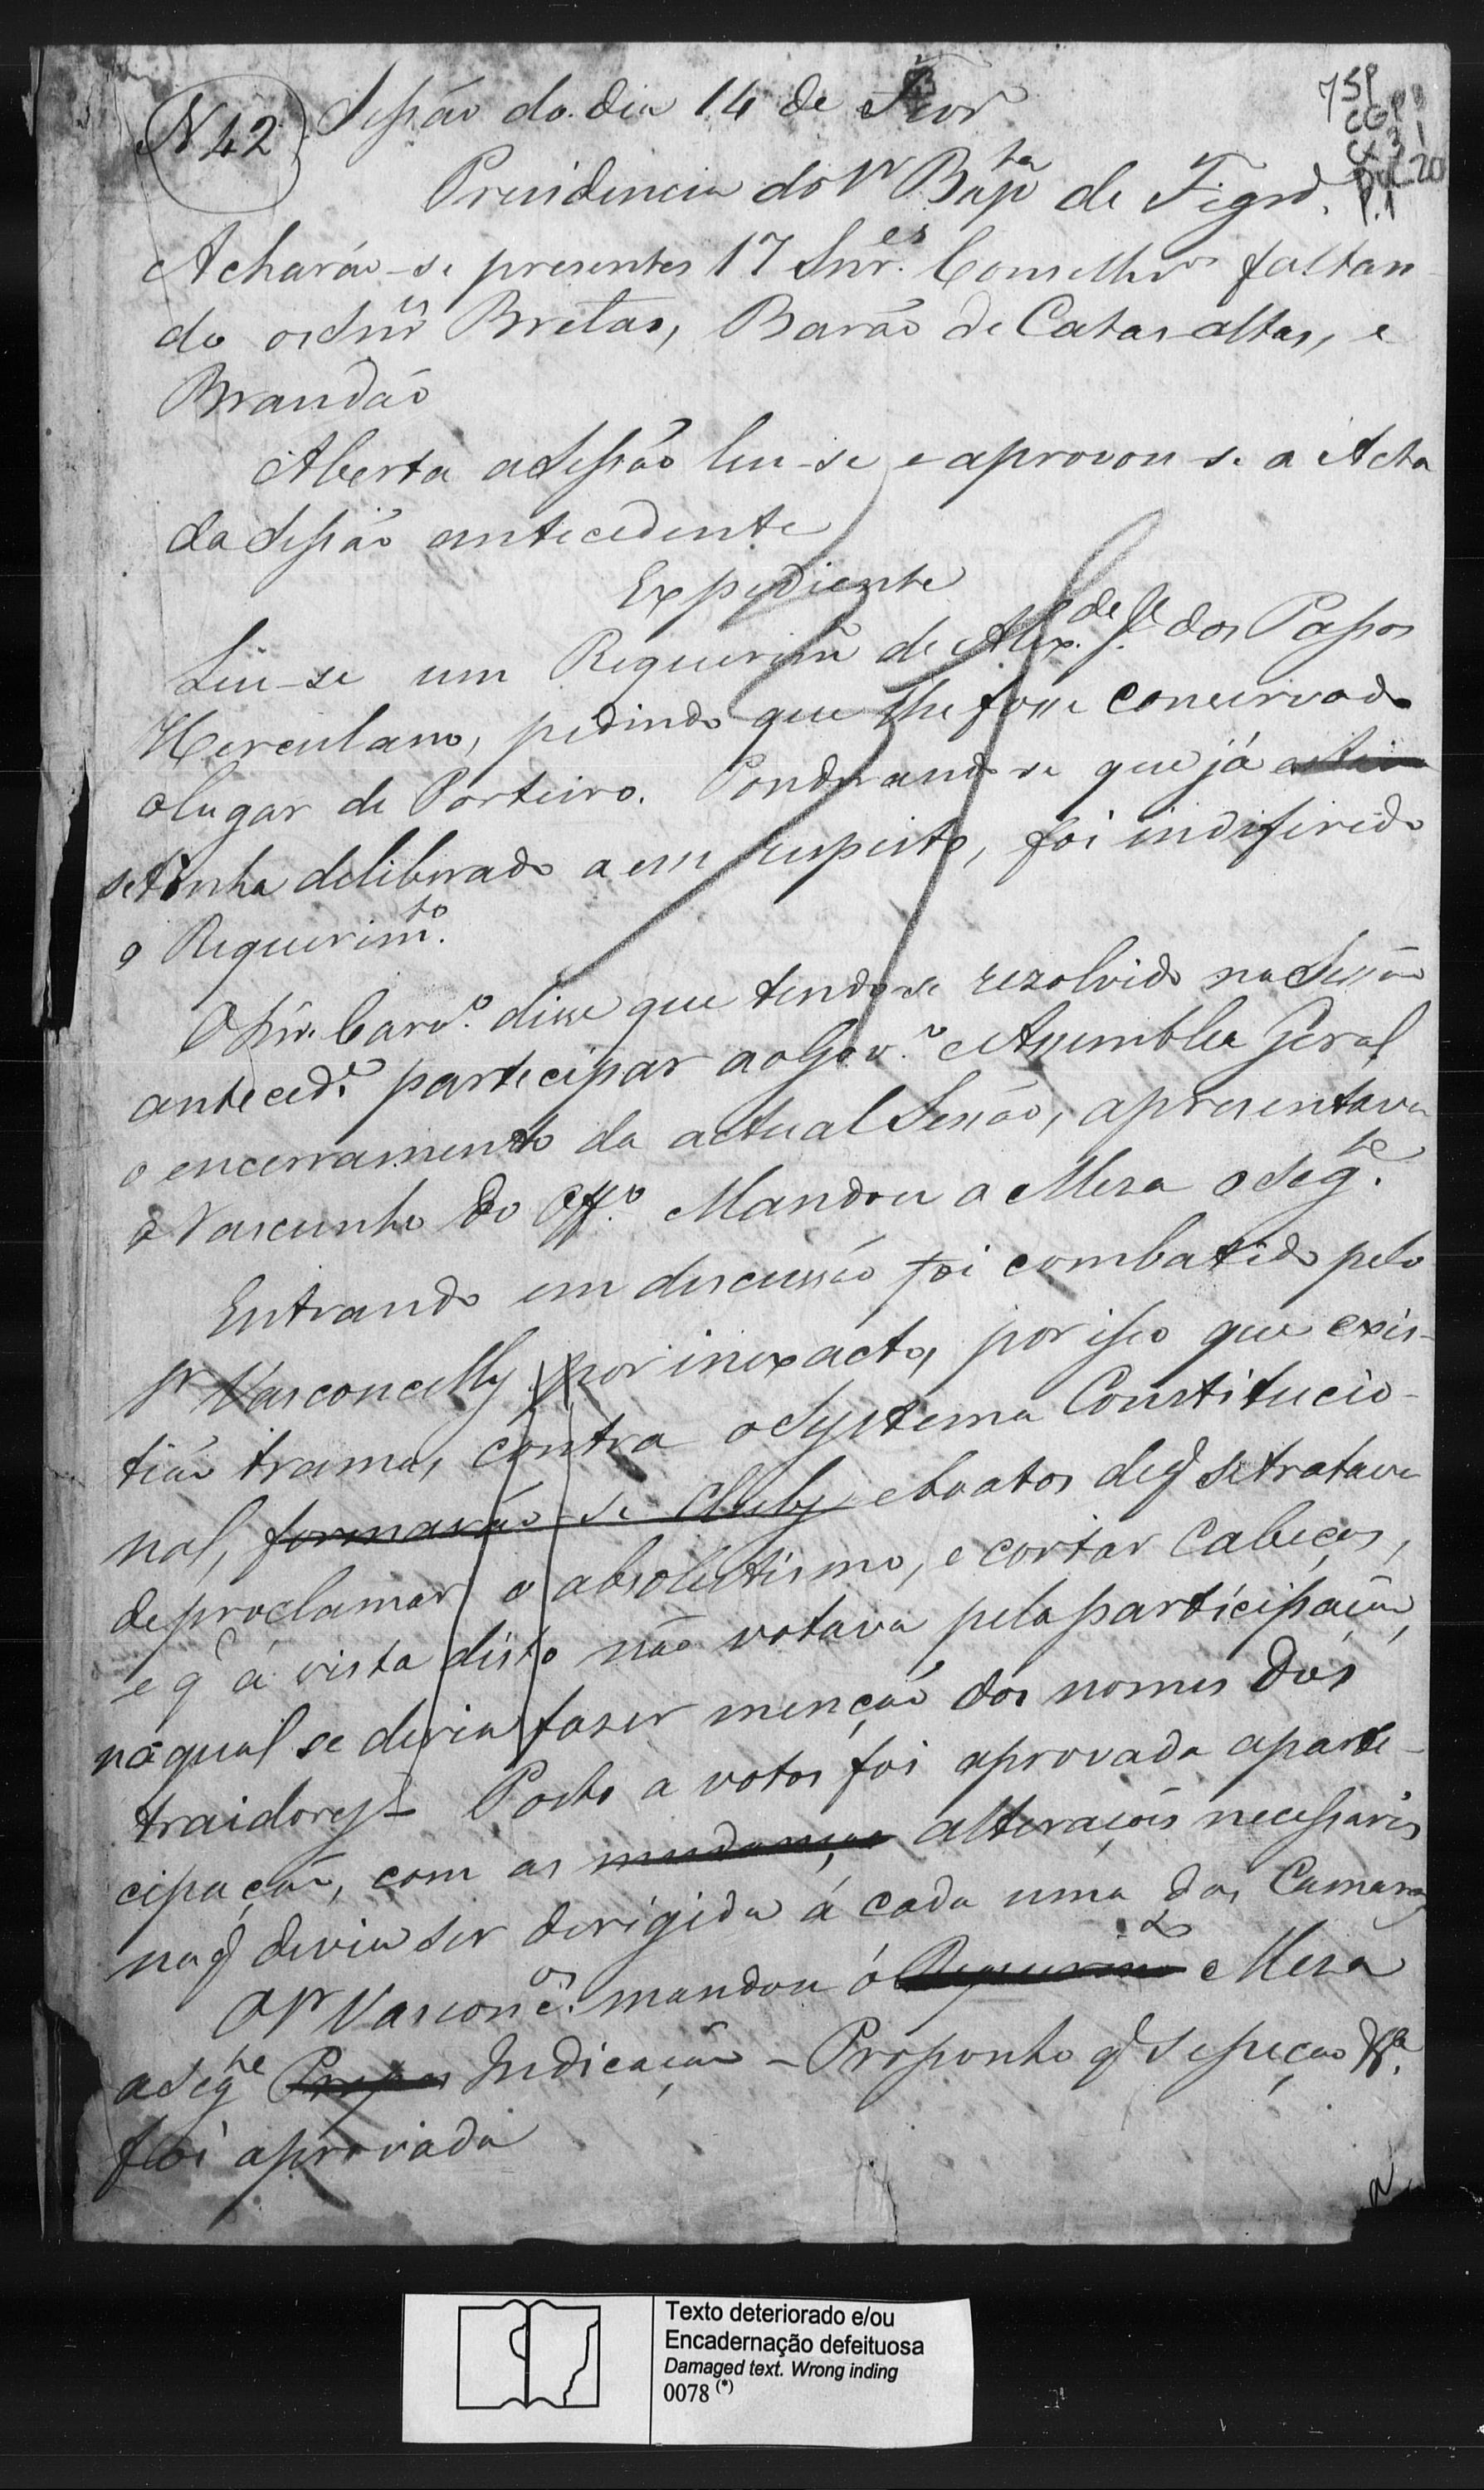 N 42
Sessão do dia 14 de Fevr
7 SP
CGP
CX 31
Doc 20
P. 1
Presidencia do Sr Bapta de Figrd.
Acharão-se presentes 17 Snres. Conselhros faltan-
do os Snres Bretas, Barão de Catas altas, e
Brandão
Aberta a Sessão leu-se e aprovou-se a Acta
da Sessão antecedente
Expediente
Leu-se um Requerimto de Alex.de Je. dos Passos
Herculano, pedindo que lhe fosse conservado
o lugar de Porteiro. Ponderando-se que já
se tinha deliberado a esse respeito, foi indiferido
o Requerimto.
O Snr. Carvo. disse que tendo-se rezolvido na Sessão
anteced.e partecipar ao Gov.o e Assemblea Geral
o encerramento da actual Sessão, apresentava
o rascunho do Off.o Mandou a Mesa o Seg.te
Entrando em discussão foi combatido pelo
Sr Vasconcellos por inexacto, por isso que exis-
tião tramas contra o Systema Constitucio-
nal, formavão-se clubs e boatos de q se tratava
de proclamar o absolutismo, e cortar Cabeças,
e q á vista disto não votava pela participação,
na qual se devia faser menção dos nomes dos
traidores - Posto a votos foi aprovada a parte-
cipação, com as mudanças alterações necessarias
na q devia ser derigida á cada uma das Camaras
O Sr Vasconc.os mandou á Requerim Mesa
a Segte Propos Indicação - Proponho q se peção &a.
foi aprovada
Texto deteriorado e/ou
Encadernação defeituosa
Damaged text. Wrong inding
0078 (*)